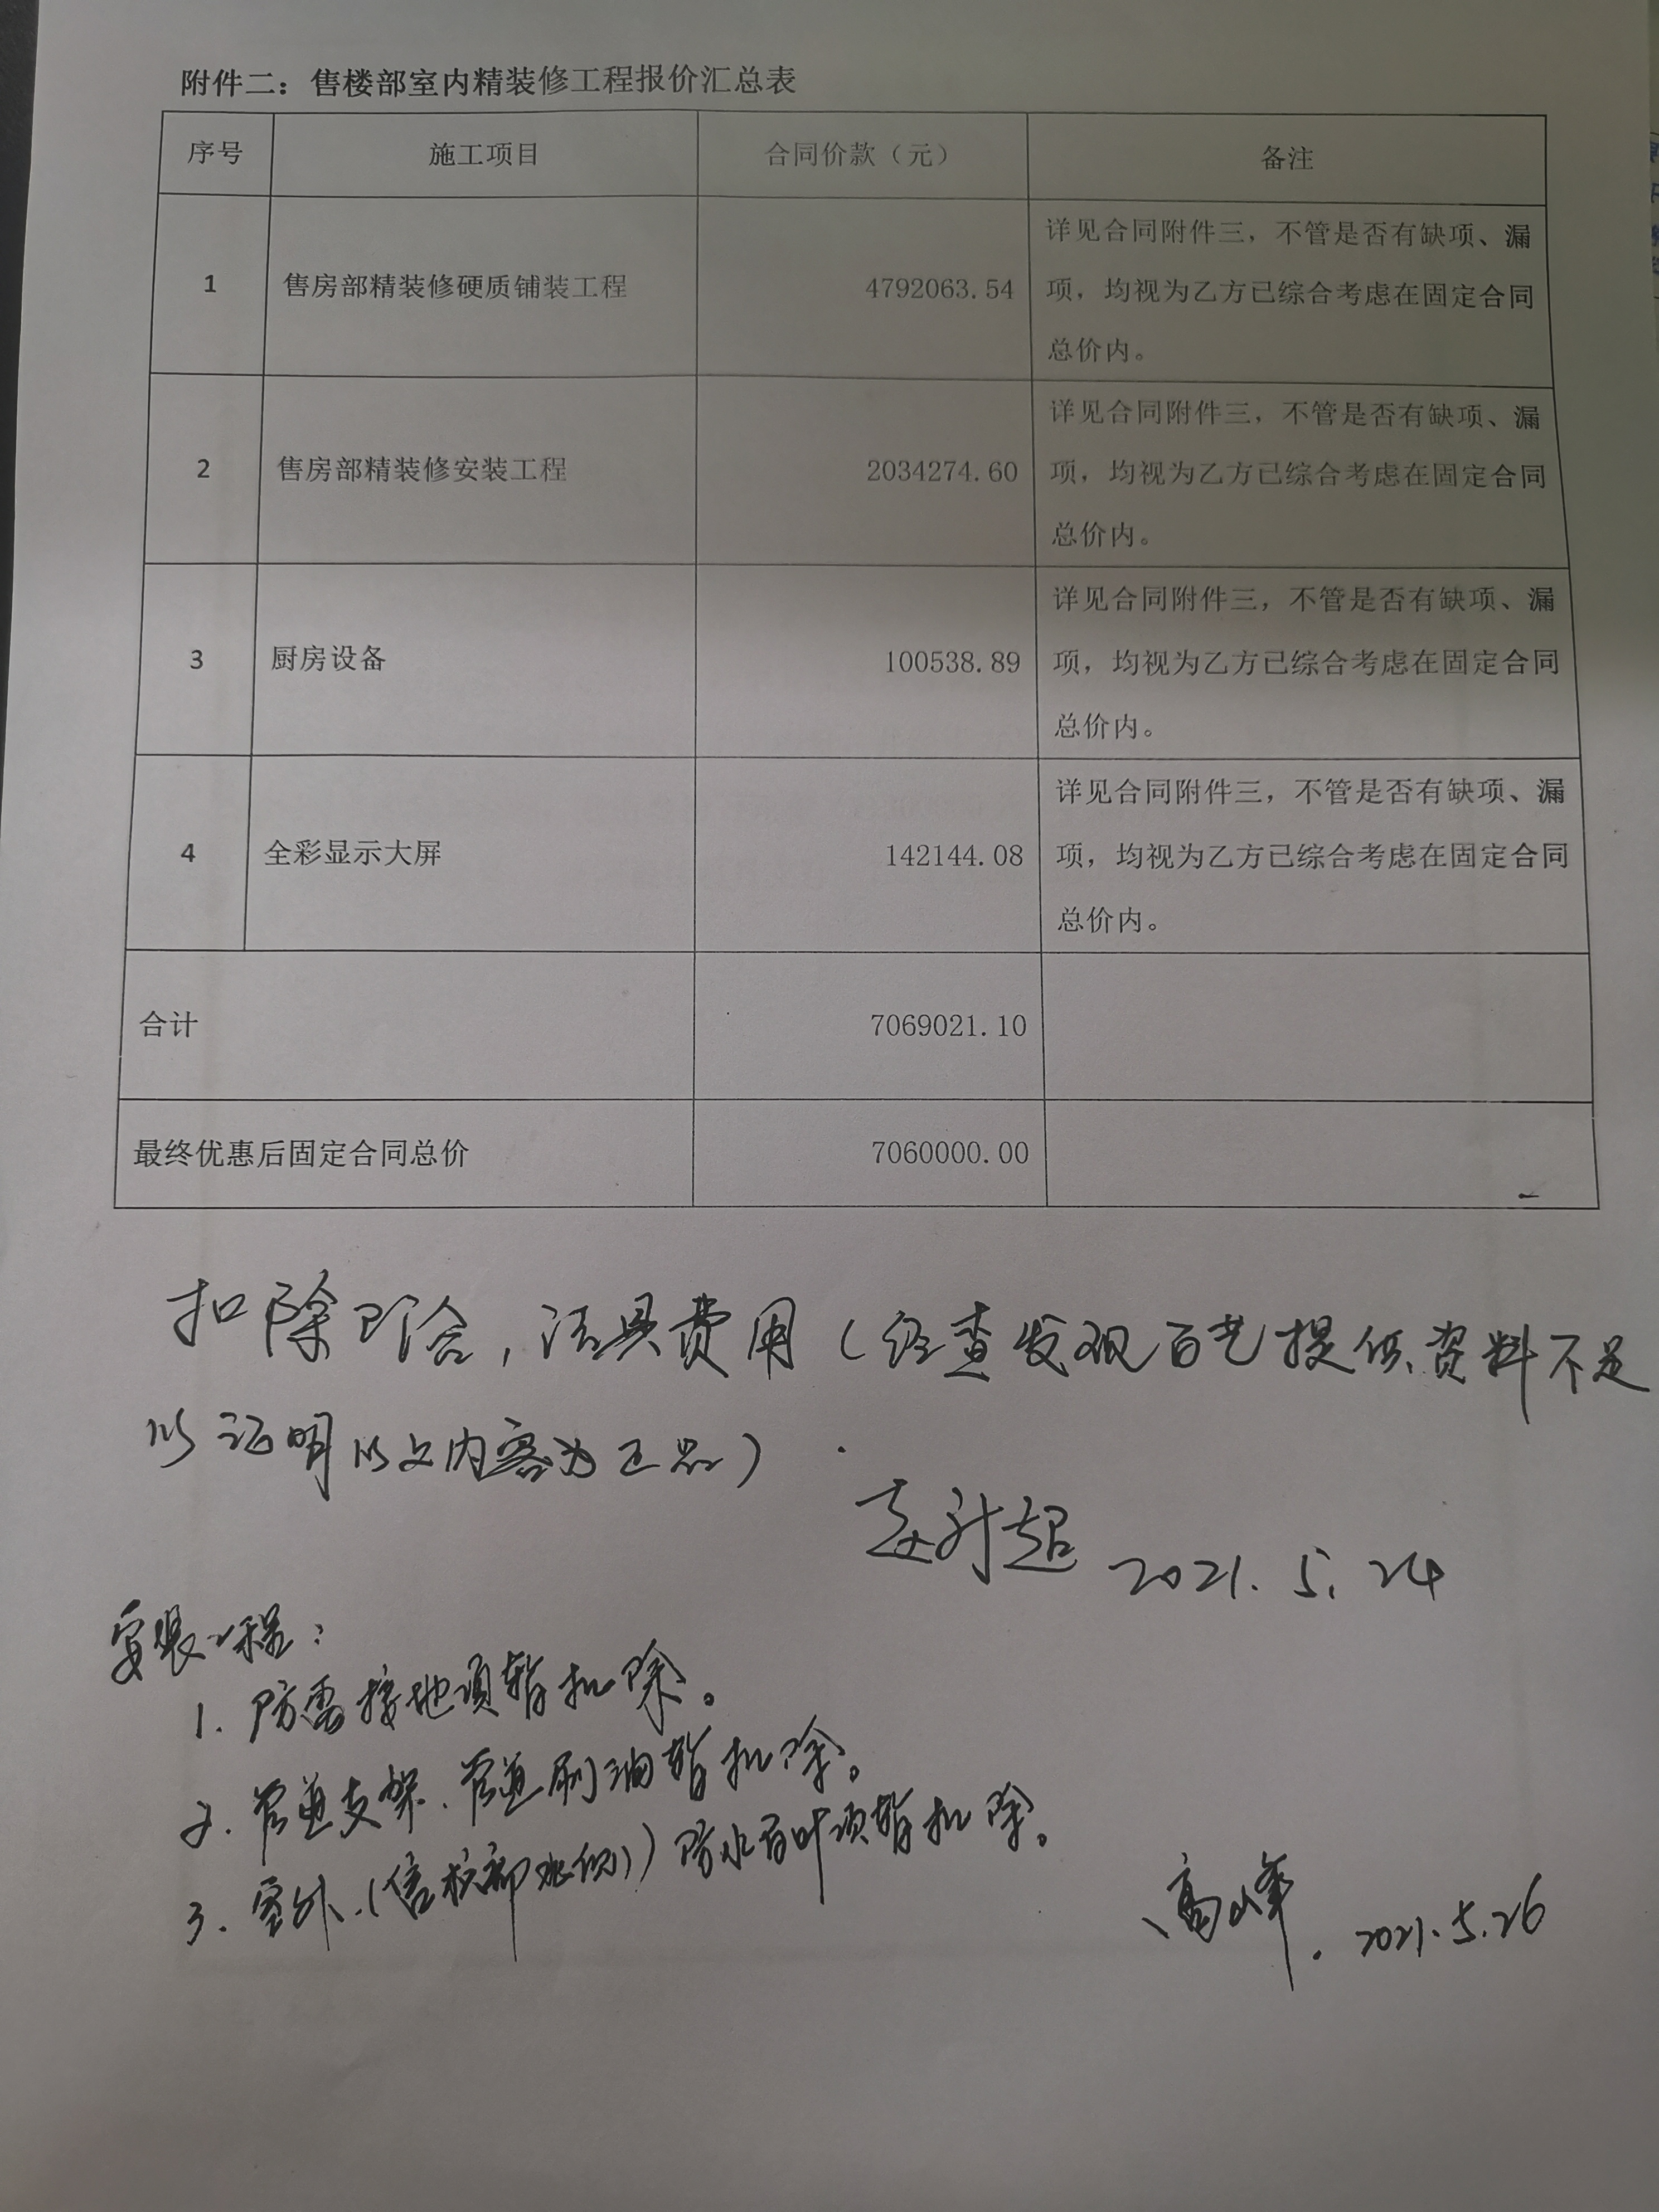 附件二：售楼部室内精装修工程报价汇总表
序号 施工项目 合同价款（元） 备注
1 售房部精装修硬质铺装工程 4792063.54 详见合同附件三，不管是否有缺项、漏
项，均视为乙方已综合考虑在固定合同
总价内。
2 售房部精装修安装工程 2034274.60 详见合同附件三，不管是否有缺项、漏
项，均视为乙方已综合考虑在固定合同
总价内。
3 厨房设备 100538.89 详见合同附件三，不管是否有缺项、漏
项，均视为乙方已综合考虑在固定合同
总价内。
4 全彩显示大屏 142144.08 详见合同附件三，不管是否有缺项、漏
项，均视为乙方已综合考虑在固定合同
总价内。
合计 7069021.10
最终优惠后固定合同总价 7060000.00
扣除 ，洁具费用（经查发现百艺提供资料不足
以证明以上内容为正品）
2021.5.24
安装工程：
1. 防雷接地项暂扣除。
2. 管道支架、管道刷油暂扣除。
3. 室外（售楼部 ）防水百叶项暂扣除。
高峰. 2021.5.26